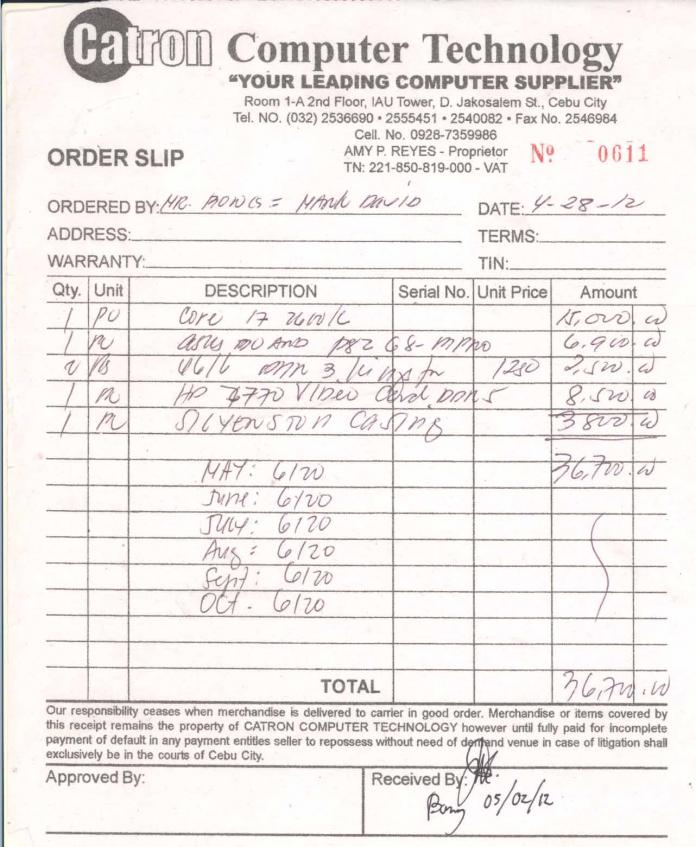 Catron Computer Technology
“YOUR LEADING COMPUTER SUPPLIER”
Room 1-A 2nd Floor, IAU Tower, D. Jakosalem St., Cebu City
Tel. NO. (032) 2536690 • 2555451 • 2540082 • Fax No. 2546984
Cell. No. 0928-7359986
AMY P. REYES - Proprietor
TN: 221-850-819-000 - VAT
ORDER SLIP
Nº 0611
ORDERED BY: MR. = MARK DAVID
DATE: 4-28-12
ADDRESS:
TERMS:
WARRANTY:
TIN:
Qty. Unit DESCRIPTION Serial No. Unit Price Amount
1 Core i7 2600K 15,000.00
1 P8Z68-M PRO 6,900.00
2 DDR 3 1250 2,500.00
1 HD 7770 Video Card DDR5 8,500.00
1 CASING 3800.00
36,700.00
MAY: 6120
June: 6120
JULY: 6120
Aug: 6120
Sept: 6120
OCT. 6120
TOTAL 36,700.00
Our responsibility ceases when merchandise is delivered to carrier in good order. Merchandise or items covered by
this receipt remains the property of CATRON COMPUTER TECHNOLOGY however until fully paid for incomplete
payment of default in any payment entities seller to repossess without need of demand venue in case of litigation shall
exclusively be in the courts of Cebu City.
Approved By:
Received By:
Bong 05/02/12